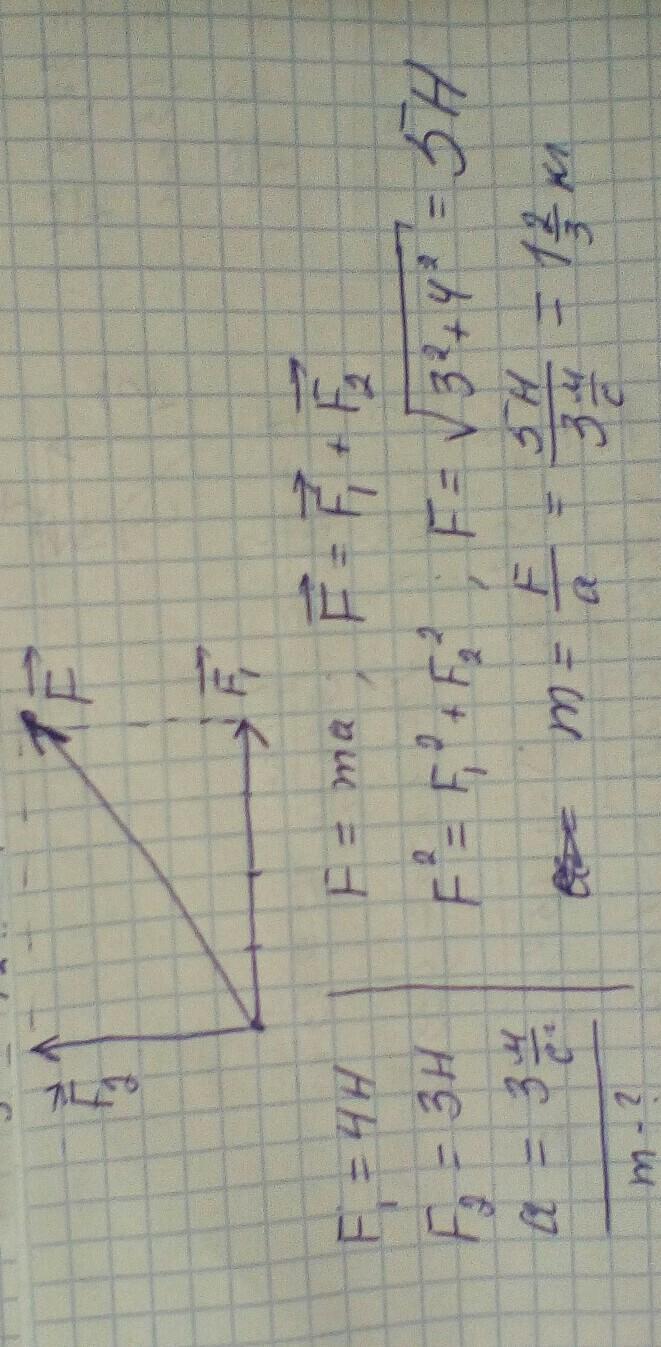 F⃗₂
F⃗
F⃗₁
F₁ = 4Н
F₂ = 3Н
a = 3 м/с²
m - ?
F = ma, F⃗ = F⃗₁ + F⃗₂
F² = F₁² + F₂², F = √(3² + 4²) = 5Н
m = F/a = 5Н/(3 м/с) = 1 2/3 кг